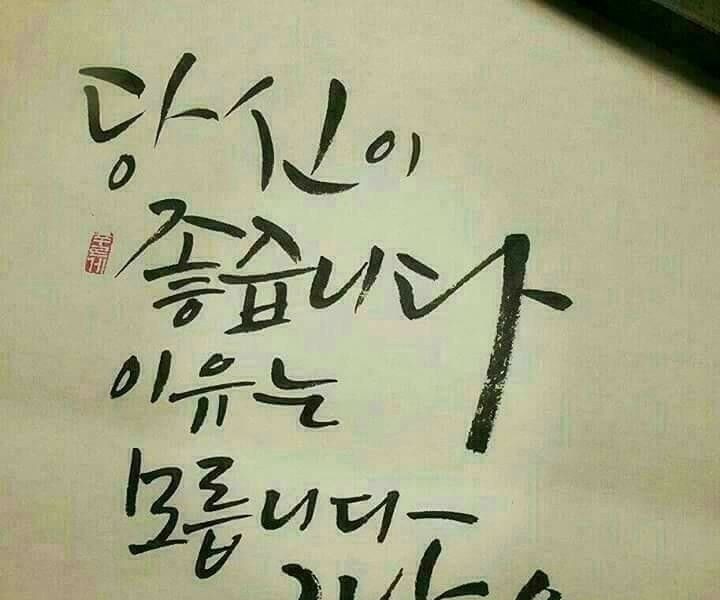 당신이
좋습니다
이유는
모릅니다